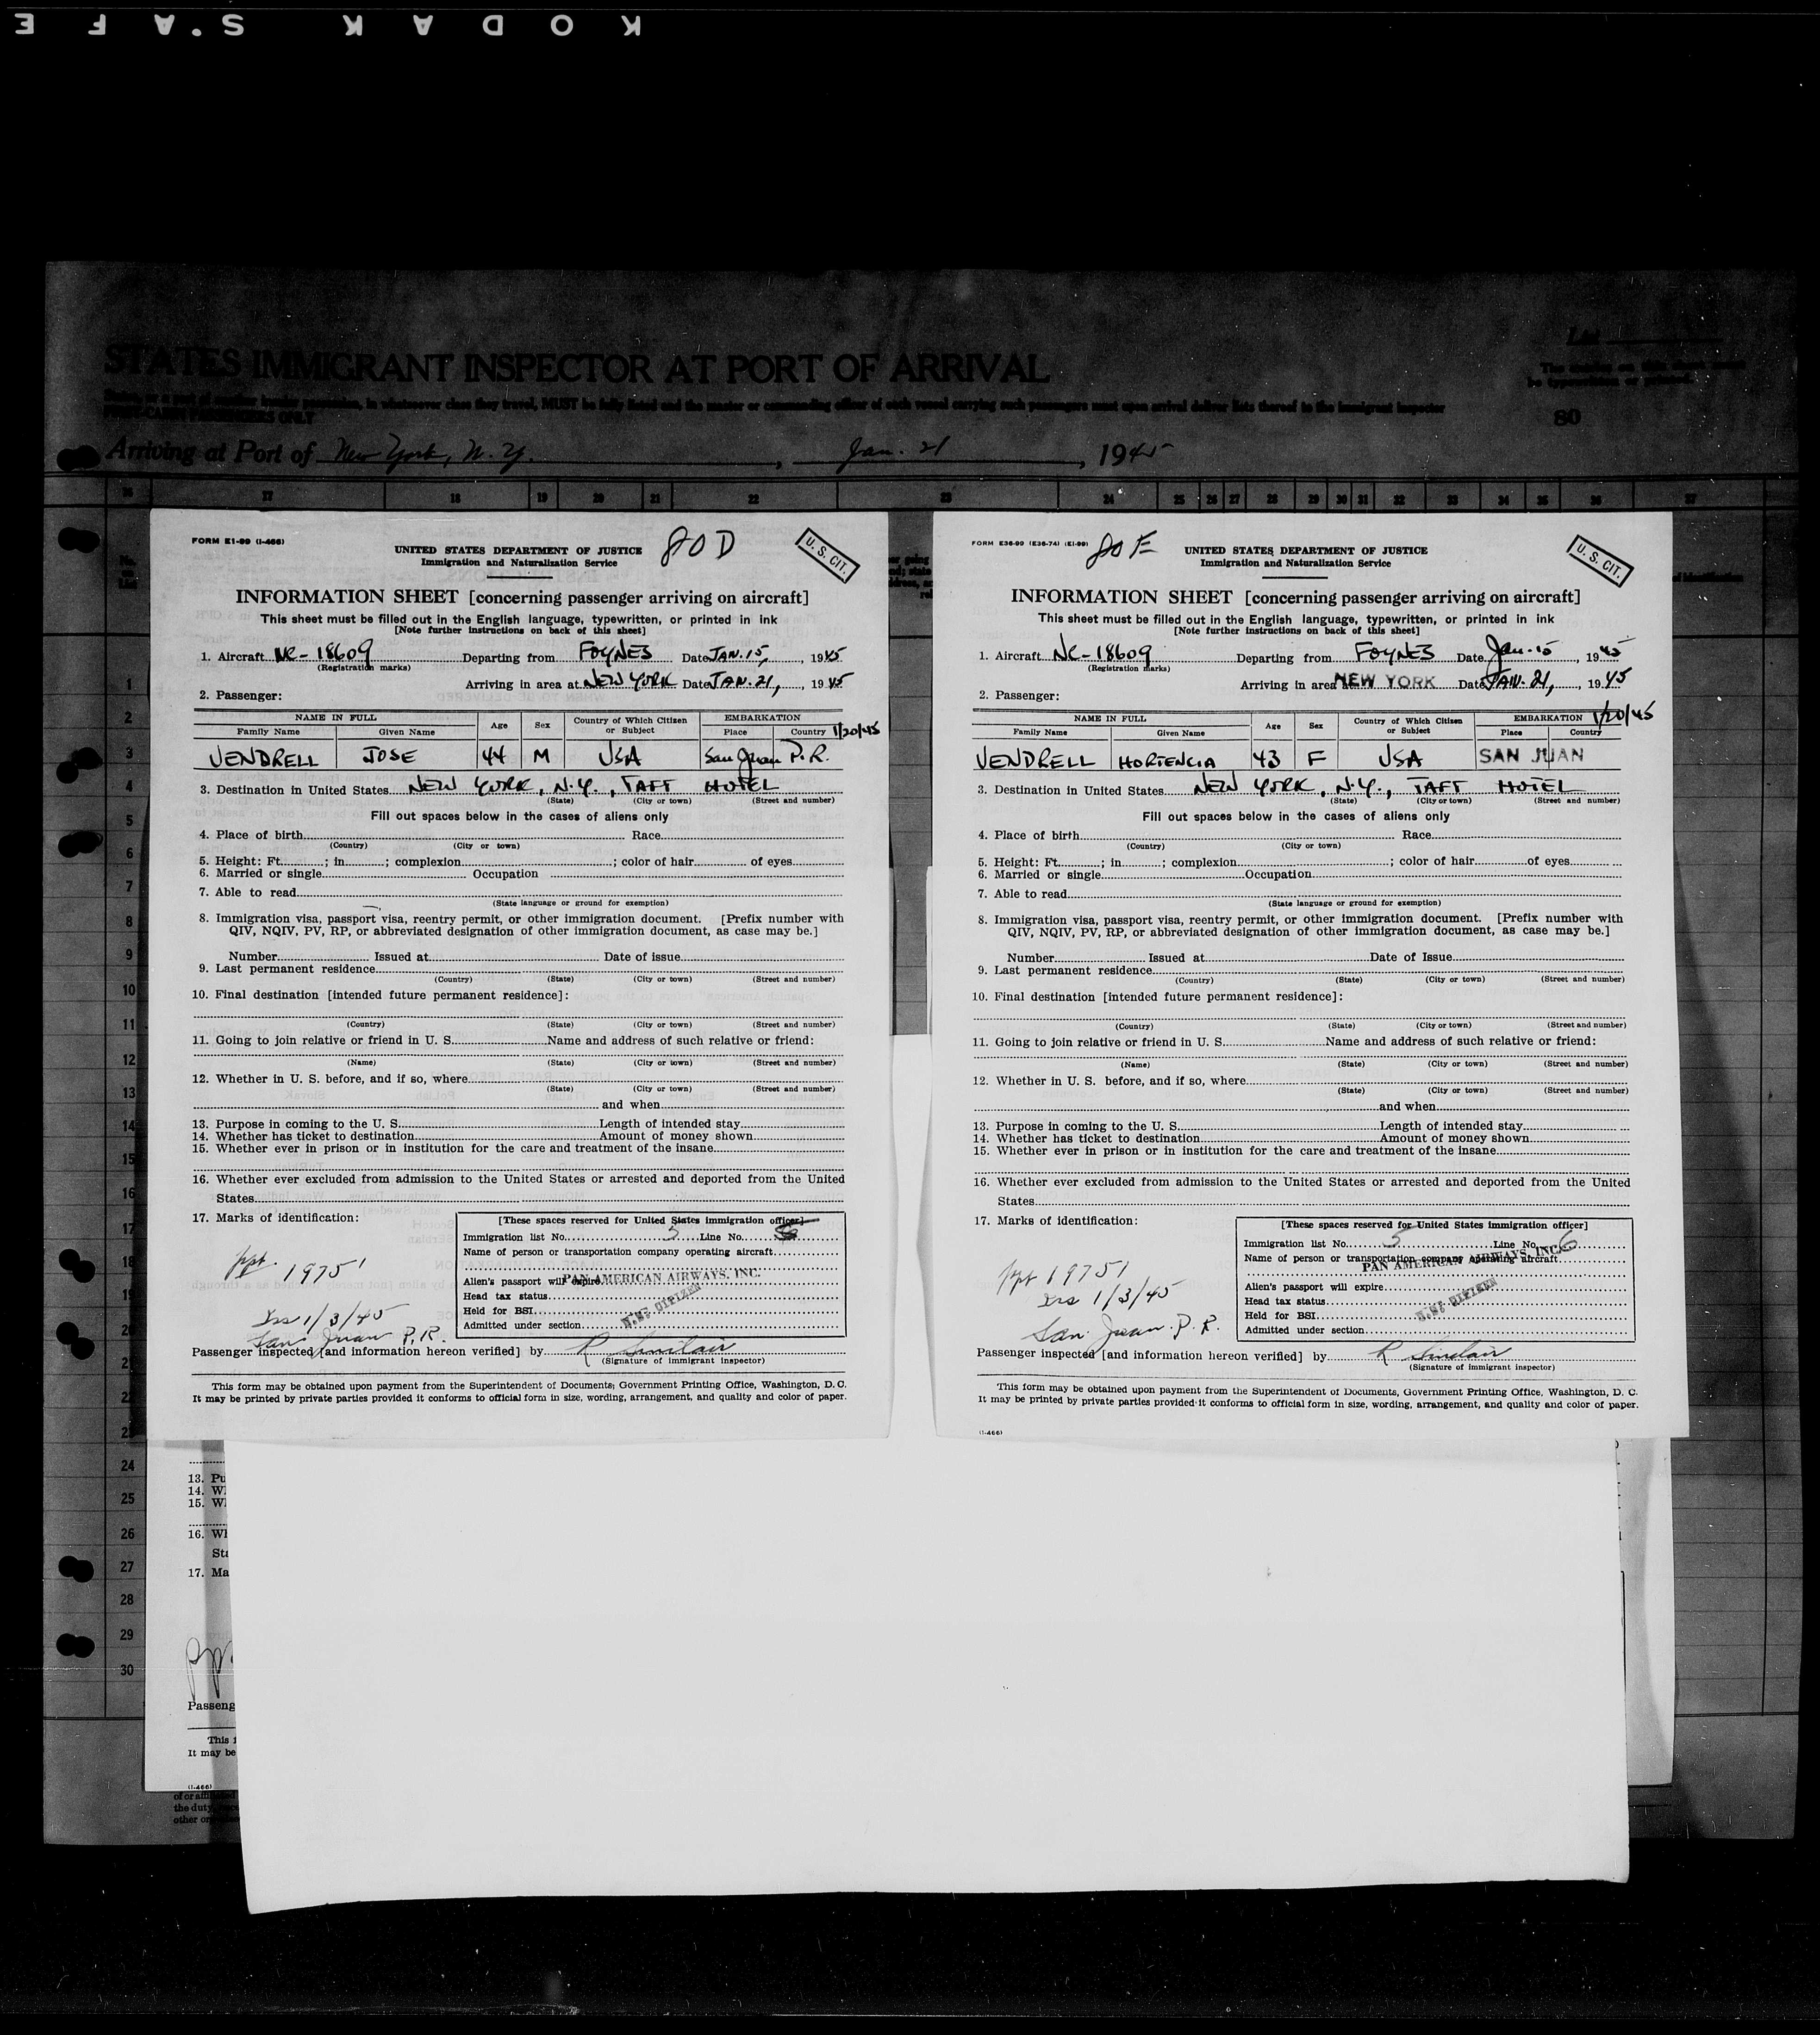 KODAK S.AFE
STATES IMMIGRANT INSPECTOR AT PORT OF ARRIVAL
List
80
Arriving at Port of New York, N.Y., Jan. 21, 1945
16 17 18 19 20 21 22 23 24 25 26 27 28 29 30 31 32 33 34 35 36 37
FORM E1-99 (I-466)
80 D
U. S. CIT.
UNITED STATES DEPARTMENT OF JUSTICE
Immigration and Naturalization Service
INFORMATION SHEET [concerning passenger arriving on aircraft]
This sheet must be filled out in the English language, typewritten, or printed in ink
[Note further instructions on back of this sheet]
1. Aircraft NC-18609 Departing from FOYNES Date JAN. 15, 1945
(Registration marks)
Arriving in area at NEW YORK Date JAN. 21, 1945
2. Passenger:
NAME IN FULL Age Sex Country of Which Citizen or Subject EMBARKATION
Family Name Given Name Place Country 1/20/45
VENDRELL JOSE 44 M USA San Juan P.R.
3. Destination in United States NEW YORK, N.Y., TAFT HOTEL
(State) (City or town) (Street and number)
Fill out spaces below in the cases of aliens only
4. Place of birth Race
(Country) (City or town)
5. Height: Ft. ; in ; complexion ; color of hair of eyes
6. Married or single Occupation
7. Able to read
(State language or ground for exemption)
8. Immigration visa, passport visa, reentry permit, or other immigration document. [Prefix number with
QIV, NQIV, PV, RP, or abbreviated designation of other immigration document, as case may be.]
Number Issued at Date of issue
9. Last permanent residence
(Country) (State) (City or town) (Street and number)
10. Final destination [intended future permanent residence]:
(Country) (State) (City or town) (Street and number)
11. Going to join relative or friend in U. S. Name and address of such relative or friend:
(Name) (State) (City or town) (Street and number)
12. Whether in U. S. before, and if so, where
(State) (City or town) (Street and number)
and when
13. Purpose in coming to the U. S. Length of intended stay
14. Whether has ticket to destination Amount of money shown
15. Whether ever in prison or in institution for the care and treatment of the insane
16. Whether ever excluded from admission to the United States or arrested and deported from the United
States
17. Marks of identification:
[These spaces reserved for United States immigration officer]
Immigration list No. 5 Line No.
Name of person or transportation company operating aircraft
PAN AMERICAN AIRWAYS, INC.
Alien's passport will expire
Head tax status
Held for BSI
Admitted under section
U.S. CITIZEN
ppt. 19751
Iss 1/3/45
San Juan P.R.
Passenger inspected [and information hereon verified] by R Sinclair
(Signature of immigrant inspector)
This form may be obtained upon payment from the Superintendent of Documents, Government Printing Office, Washington, D. C.
It may be printed by private parties provided it conforms to official form in size, wording, arrangement, and quality and color of paper.
FORM E36-90 (E36-74) (E1-99)
80 E
U. S. CIT.
UNITED STATES DEPARTMENT OF JUSTICE
Immigration and Naturalization Service
INFORMATION SHEET [concerning passenger arriving on aircraft]
This sheet must be filled out in the English language, typewritten, or printed in ink
[Note further instructions on back of this sheet]
1. Aircraft NC-18609 Departing from FOYNES Date Jan. 15, 1945
(Registration marks)
Arriving in area NEW YORK Date JAN. 21, 1945
2. Passenger:
NAME IN FULL Age Sex Country of Which Citizen or Subject EMBARKATION 1/20/45
Family Name Given Name Place Country
VENDRELL HORTENCIA 43 F USA SAN JUAN
3. Destination in United States NEW YORK, N.Y., TAFT HOTEL
(State) (City or town) (Street and number)
Fill out spaces below in the cases of aliens only
4. Place of birth Race
(Country) (City or town)
5. Height: Ft. ; in ; complexion ; color of hair of eyes
6. Married or single Occupation
7. Able to read
(State language or ground for exemption)
8. Immigration visa, passport visa, reentry permit, or other immigration document. [Prefix number with
QIV, NQIV, PV, RP, or abbreviated designation of other immigration document, as case may be.]
Number Issued at Date of Issue
9. Last permanent residence
(Country) (State) (City or town) (Street and number)
10. Final destination [intended future permanent residence]:
(Country) (State) (City or town) (Street and number)
11. Going to join relative or friend in U. S. Name and address of such relative or friend:
(Name) (State) (City or town) (Street and number)
12. Whether in U. S. before, and if so, where
(State) (City or town) (Street and number)
and when
13. Purpose in coming to the U. S. Length of intended stay
14. Whether has ticket to destination Amount of money shown
15. Whether ever in prison or in institution for the care and treatment of the insane
16. Whether ever excluded from admission to the United States or arrested and deported from the United
States
17. Marks of identification:
[These spaces reserved for United States immigration officer]
Immigration list No. 5 Line No. 6
Name of person or transportation company operating aircraft
PAN AMERICAN AIRWAYS, INC.
Alien's passport will expire
Head tax status
Held for BSI
Admitted under section
U.S. CITIZEN
ppt 19751
Iss 1/3/45
San Juan P.R.
Passenger inspected [and information hereon verified] by R Sinclair
(Signature of immigrant inspector)
This form may be obtained upon payment from the Superintendent of Documents, Government Printing Office, Washington, D. C.
It may be printed by private parties provided it conforms to official form in size, wording, arrangement, and quality and color of paper.
(I-466)
1
2
3
4
5
6
7
8
9
10
11
12
13
14
15
16
17
18
19
20
21
22
23
24
25
26
27
28
29
30
13. Pu
14. W
15. W
16. Wh
Sta
17. Ma
Passeng
This f
It may be
(I-466)
the duty
other or